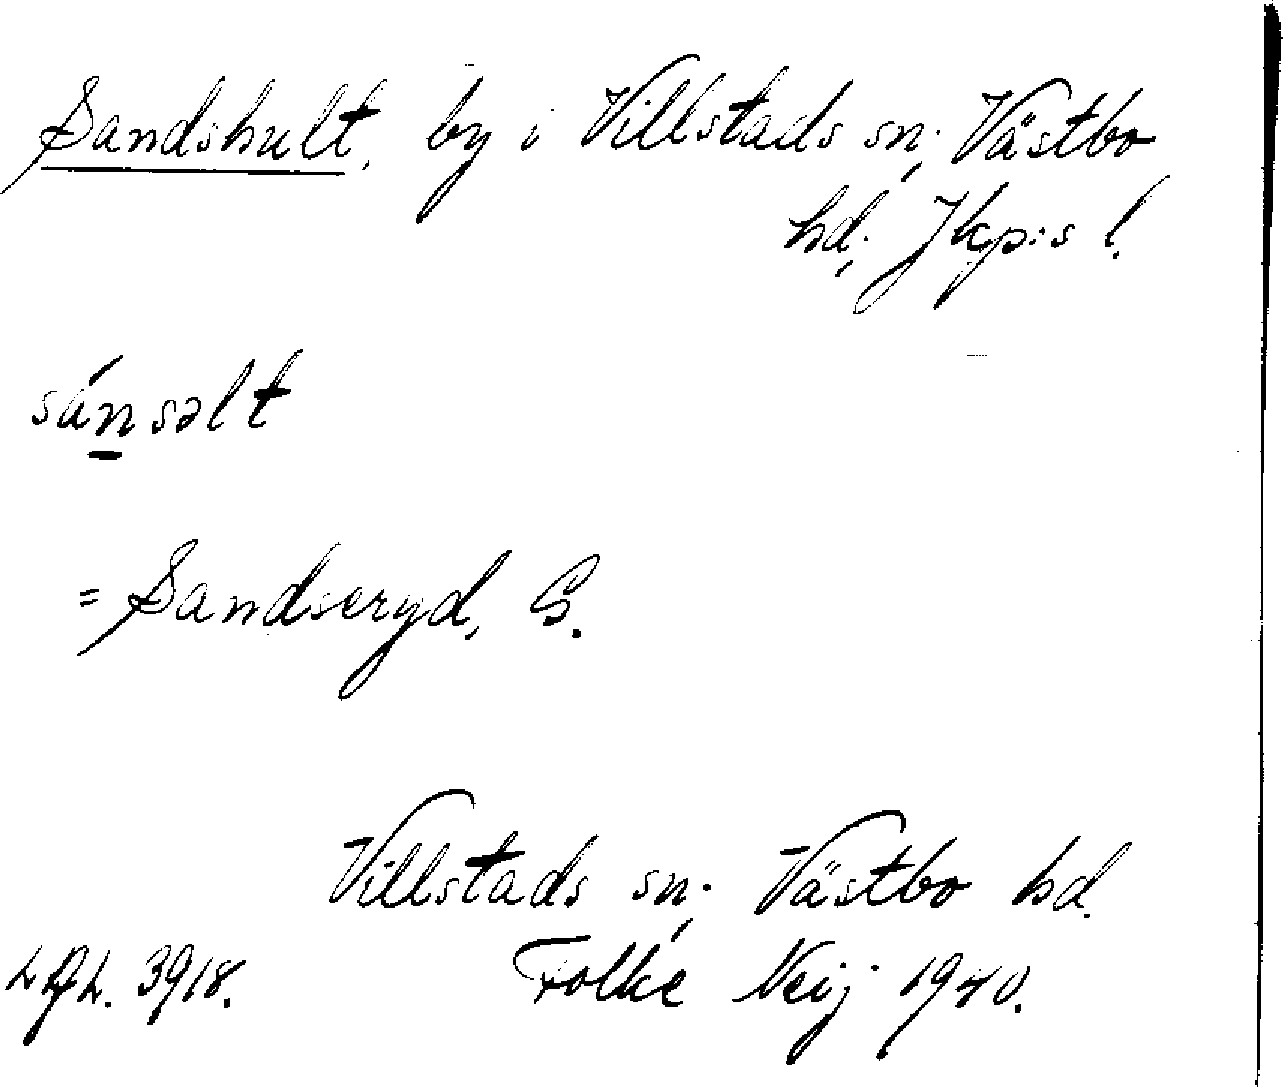 Sandshult, by i Villstads sn; Västbo
hd; Jkp:s l.
sánsəlt
= Sandseryd, S.
Villstads sn; Västbo hd.
3918. Folke Neij 1940.